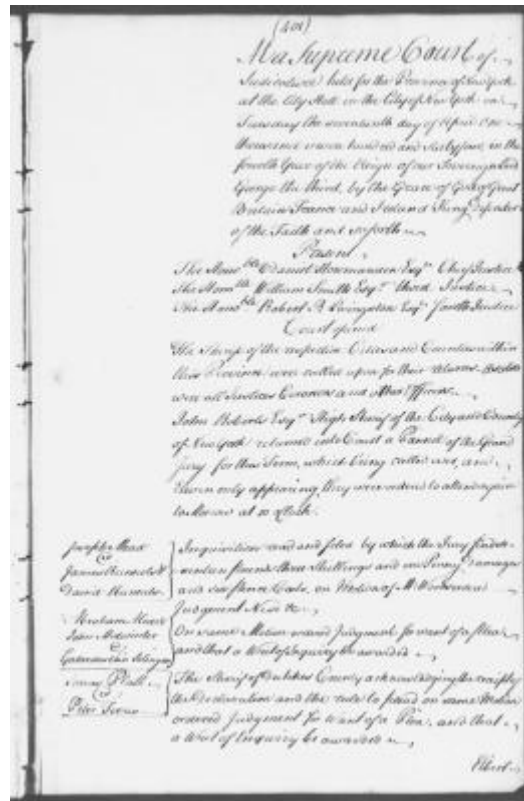 (401)
At a Supreme Court of
Judicature held for the Province of New York
at the City Hall in the City of New York on
Tuesday the seventeenth day of April One
thousand seven hundred and sixty four, in the
fourth Year of the Reign of our Sovereign Lord
George the third, by the Grace of God of Great
Britain France and Ireland King Defender
of the Faith and so forth
Present
The Honoble Daniel Horsmanden Esqr Chief Justice
The Honoble William Smith Esqr third Justice
The Honoble Robert R. Livingston Esqr fourth Justice
Court opened
The Sherifs of the respective Cities and Counties within
this Province were called upon for their returns
were all Justices Coroners and other Officers
John Roberts Esqr High Sherif of the City and County
of New York returned into Court a Pannel of the Grand
Jury for this Term, which being called over, and
eleven only appearing, they were ordered to attend again
tomorrow at 10 Clock.
Joseph Mead
James
David
Inquisition read and filed by which the Jury find
pounds three Shillings and Penny damages
and six pence Costs, on Motion of Mr
Judgment Nisi &c
Abraham
John
On same Motion ordered Judgment for want of a Plea
and that a Writ of Inquiry be awarded
Platt
Peter
The Sherif of Dutchess County acknowledging the receipt of
the declaration and the rule to plead on same Motion
ordered Judgment for want of a Plea, and that
a Writ of Inquiry be awarded